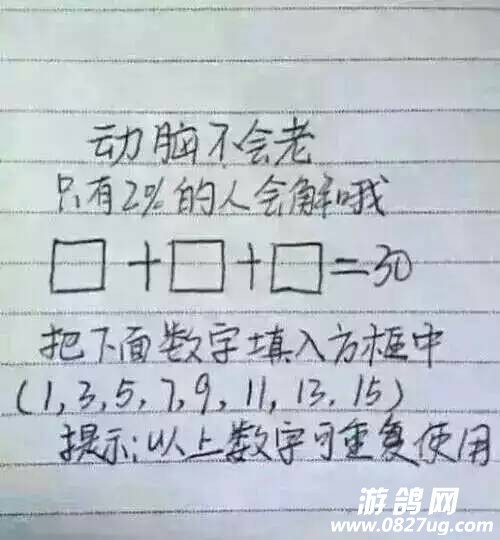 动脑不会老
只有2%的人会解哦
□+□+□=30
把下面数字填入方框中
(1,3,5,7,9,11,13,15)
提示:以上数字可重复使用
游鸽网
www.0827ug.com